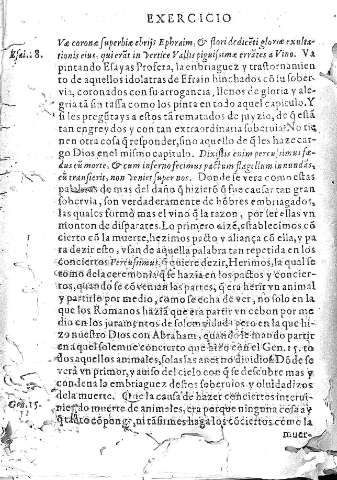 EXERCICIO
Væ coronæ superbiæ ebrijs Ephraim, & flori decidẽti gloriæ exulta-
Esai. 28.
tionis eius, qui erãt in Vertice Vallis piguissimæ errãtes a Vino. Va
pintando Esayas Profeta, la enbriaguez y trastornamien
to de aquellos idolatras de Efrain hinchados cõ su sober
via, coronados con su arrogancia, llenos de gloria y ale
gria tã sin tassa como los pinta en todo aquel capiulo. Y
si les pregũtays a estos tã rematados de juyzio, de q̃ està
tan engreydos y con tan extraordinaria soberuia? No tie
nen otra cosa q̃ responder, sino aquello de q̃ les haze car
go Dios en el mismo capitulo. Dixistis enim percussimus fæ-
dus cũ morte, & cum inferno fecimus pactum flagellum inundãs,
cũ transierit, non Veniet super nos. Donde se vera como estas
palabras de mas del daño q̃ hizierõ q̃ fue causar tan gran
sobervia, son verdaderamente de hõbres embriagados,
las quales formò mas el vino q̃ la razon, por ser ellas vn
monton de disparates. Lo primero dizẽ, establecimos cõ
cierto cõ la muerte, hezimos pacto y aliança cõ ella, y pa
ra dezir esto, vsan de aquella palabra tan repetida en los
conciertos Percussimus, q̃ quiere dezir, Herimos, la qual se
tomo de la ceremonia q̃ se hazia en los pactos y concier-
tos, quando se cõvenian las partes, q̃ era herir vn animal
y partirlo por medio, como se echa de ver, no solo en la
que los Romanos hazia que era partir vn cebon por me
dio en los juramentos de solemnidad, pero en la que hi-
zo nuestro Dios con Abraham, quando le mando partir
en aquel solemne concierto que hizo con el Gen. 15. to
dos aquellos animales, solas las aues no dividio. Dõde se
verà vn primor, y auiso del cielo con q̃ se descubre mas y
condena la embriaguez destos soberuios y oluidadizos
Gen. 15.
de la muerte. Que la causa de hazer conciertos intervi-
niendo muerte de animales, era porque ninguna cosa ay
q̃ tanto cõponga, ni tã firmes haga los ciertos, como la
muer-